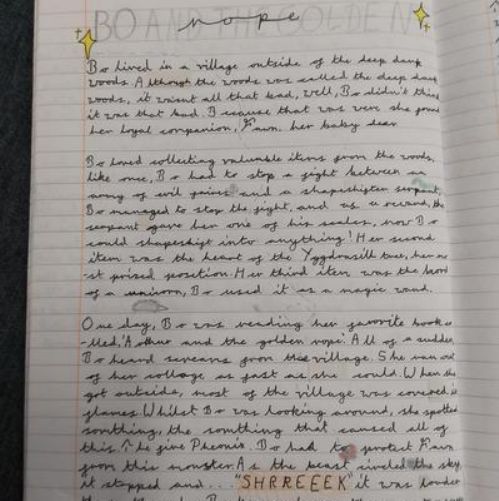 BO AND THE GOLDEN
nope
Bo lived in a village outside of the deep dark
woods. Although the woods was called the deep dark
woods, it wasnt all that bad, well, Bo didn't think
it was that bad. Because that was were she found
her loyal companion, Fawn, her baby dear
Bo loved collecting valuable items from the woods.
like once, Bo had to stop a fight between an
army of evil fairies and a shapeshifter serpent,
Bo managed to stop the fight, and as a reward, the
serpant gave her one of his scales, now Bo
could shapeshift into anything! Her second
item was the heart of the Yggdrasill tree, her
-st prized position. Her third item was the horn
of a unicorn, Bo used it as a magic wand.
One day, Bo was reading her favorite book
-lled, 'Arthur and the golden rope'. All of a sudden
Bo heard screams from the village. She ran out
of her cottage as fast as she could. When she
got outside, most of the village was covered in
flames. Whilst Bo was looking around, she spotted
somthing, the somthing that caused all of
this. The fire Pheonix. Bo had to protect Fawn
from this monster. As the beast circled the sky,
it stopped and... "SHRREEEK" it was louder